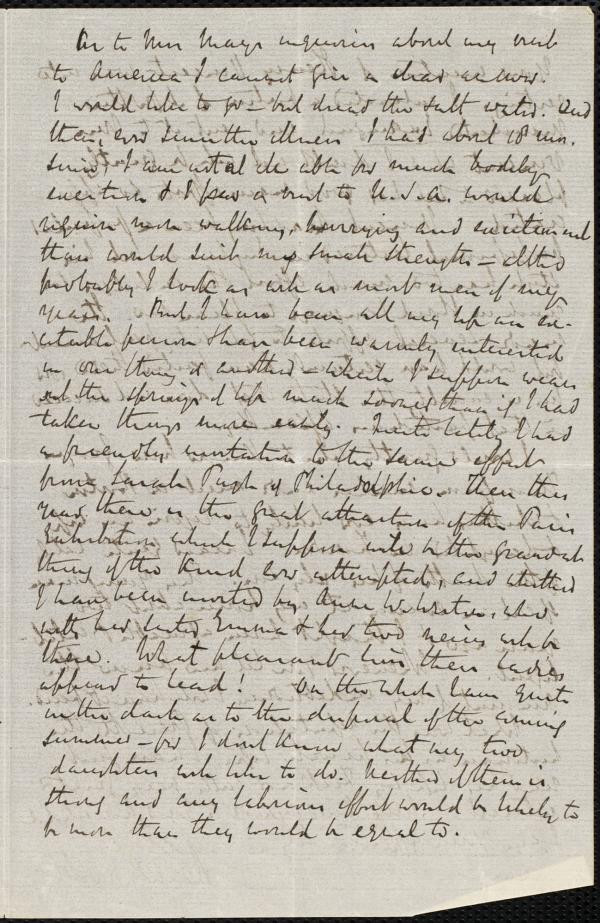 As to Mrs Mays inquiries about my visit
to America I cannot give a clear answer.
I would like to go – but dread the salt water. And
then, ever since the illness I had about 18 mos.
since, I am not at all able for much bodily
exertion & I fear a visit to U.S.A. would
require more walking, hurrying and excitement
than would suit my small strength – altho
probably I look as well as most men of my
years. But I have been all my life an ex-
citable person & have been warmly interested
in one thing or another – which I suppose wears
out the springs of life much sooner than if I had
taken things more easily. Quite lately I had
a friendly invitation to the same effect
from Sarah Pugh of Philadelphia. Then this
year there is the great attraction of the Paris
Exhibition which I suppose will be the grandest
thing of the kind ever attempted, and whither
I have been invited by Anne Weston, who
with her sister Emma & her two nieces will be
there. What pleasant lives these ladies
appear to lead! On the whole I am quite
in the dark as to the disposal of the coming
summer – for I dont know what my two
daughters will like to do. Neither of them is
strong and any laborious effort would be likely to
be more than they would be equal to.